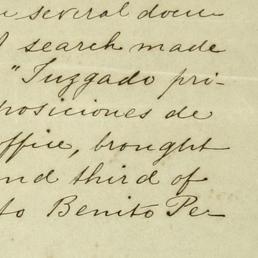 several docu
search made
"Juzgado pri-
posiciones de
office, brought
and third of
to Benito Pe